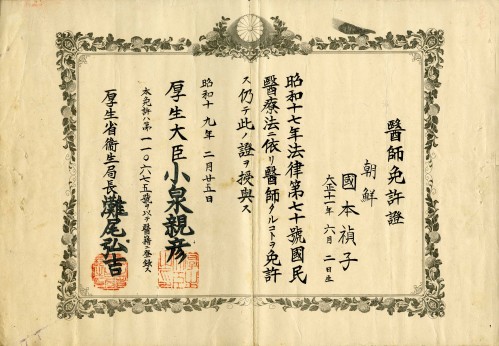 醫師免許證
朝鮮
國本禎子
大正十一年六月二日生
昭和十七年法律第七十號國民
醫療法ニ依リ醫師タルコトヲ免許
ス仍テ此ノ證ヲ授與ス
昭和十九年二月廿五日
厚生大臣小泉親彥
本免許ハ第一一〇六七五號ヲ以テ醫籍ニ登錄ス
厚生省衞生局長灘尾弘吉